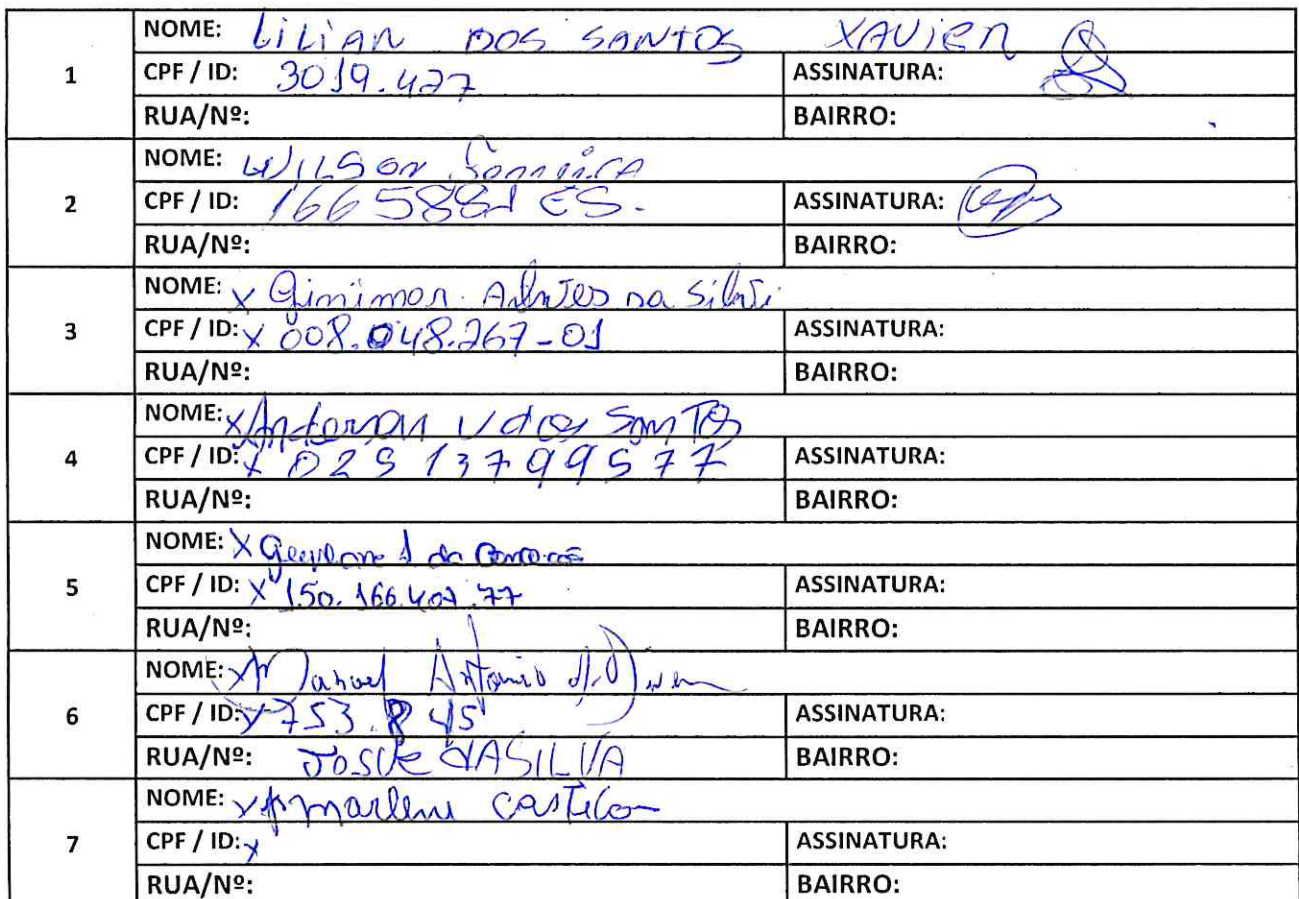 NOME: LiLiAN DOS SANTOS XAVIER
1 CPF / ID: 3019.427 ASSINATURA:
RUA/Nº: BAIRRO:
NOME: WILSON
2 CPF / ID: 1665881 ES. ASSINATURA:
RUA/Nº: BAIRRO:
NOME: X da
3 CPF / ID: X 008.048.267-01 ASSINATURA:
RUA/Nº: BAIRRO:
NOME: X Anderson V dos Santos
4 CPF / ID: X 02913799577 ASSINATURA:
RUA/Nº: BAIRRO:
NOME: X
5 CPF / ID: X 150.166.407.77 ASSINATURA:
RUA/Nº: BAIRRO:
NOME: X Manoel Antonio
6 CPF / ID: X 753.845 ASSINATURA:
RUA/Nº: JOSUE DA SILVA BAIRRO:
NOME: X
7 CPF / ID: X ASSINATURA:
RUA/Nº: BAIRRO: